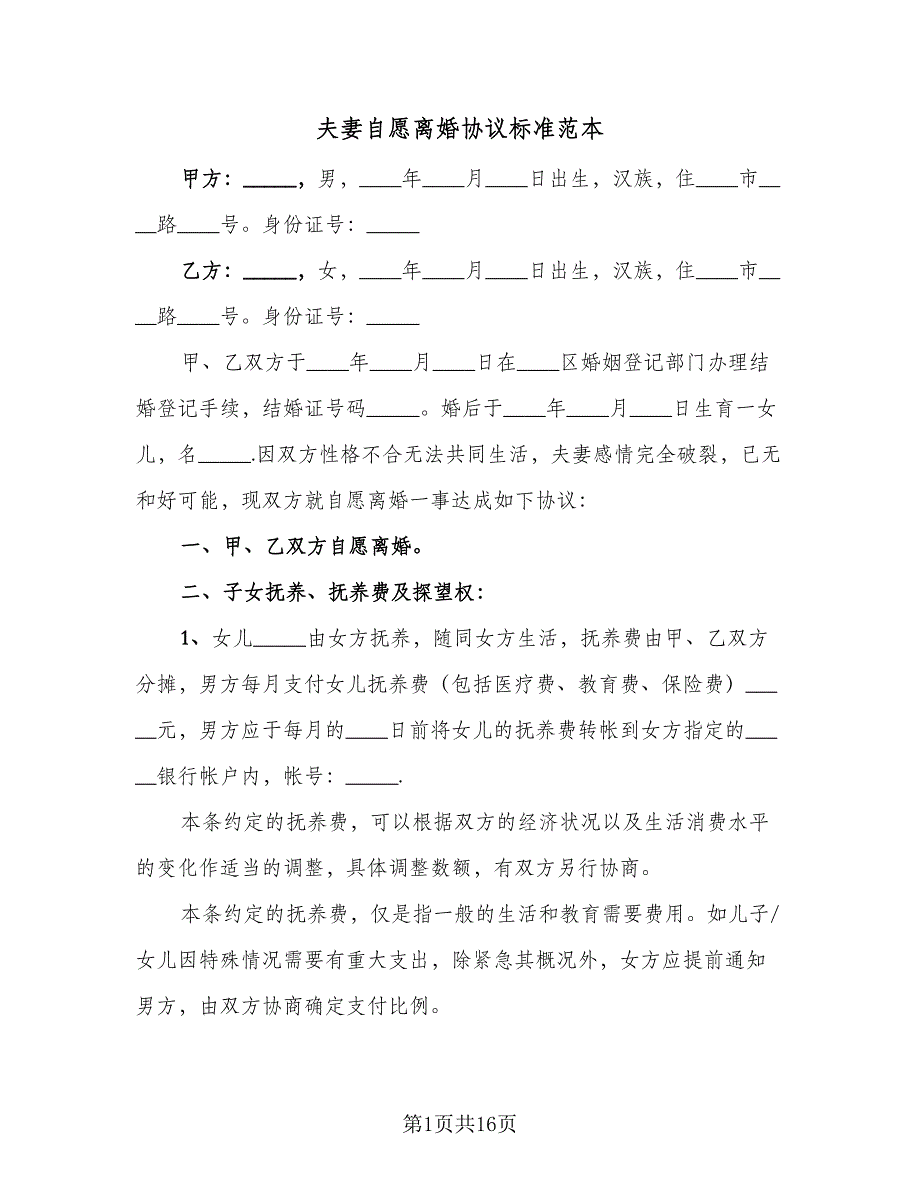 夫妻自愿离婚协议标准范本
甲方：_____，男，____年____月____日出生，汉族，住____市__
__路____号。身份证号：_____
乙方：_____，女，____年____月____日出生，汉族，住____市__
__路____号。身份证号：_____
甲、乙双方于____年____月____日在____区婚姻登记部门办理结
婚登记手续，结婚证号码_____。婚后于____年____月____日生育一女
儿，名_____.因双方性格不合无法共同生活，夫妻感情完全破裂，已无
和好可能，现双方就自愿离婚一事达成如下协议：
一、甲、乙双方自愿离婚。
二、子女抚养、抚养费及探望权：
1、女儿_____由女方抚养，随同女方生活，抚养费由甲、乙双方
分摊，男方每月支付女儿抚养费（包括医疗费、教育费、保险费）___
__元，男方应于每月的____日前将女儿的抚养费转帐到女方指定的___
__银行帐户内，帐号：_____.
本条约定的抚养费，可以根据双方的经济状况以及生活消费水平
的变化作适当的调整，具体调整数额，有双方另行协商。
本条约定的抚养费，仅是指一般的生活和教育需要费用。如儿子/
女儿因特殊情况需要有重大支出，除紧急其概况外，女方应提前通知
男方，由双方协商确定支付比例。
第1页共16页